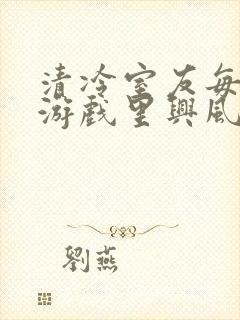 清冷室友每
游戲里興風
劉燕